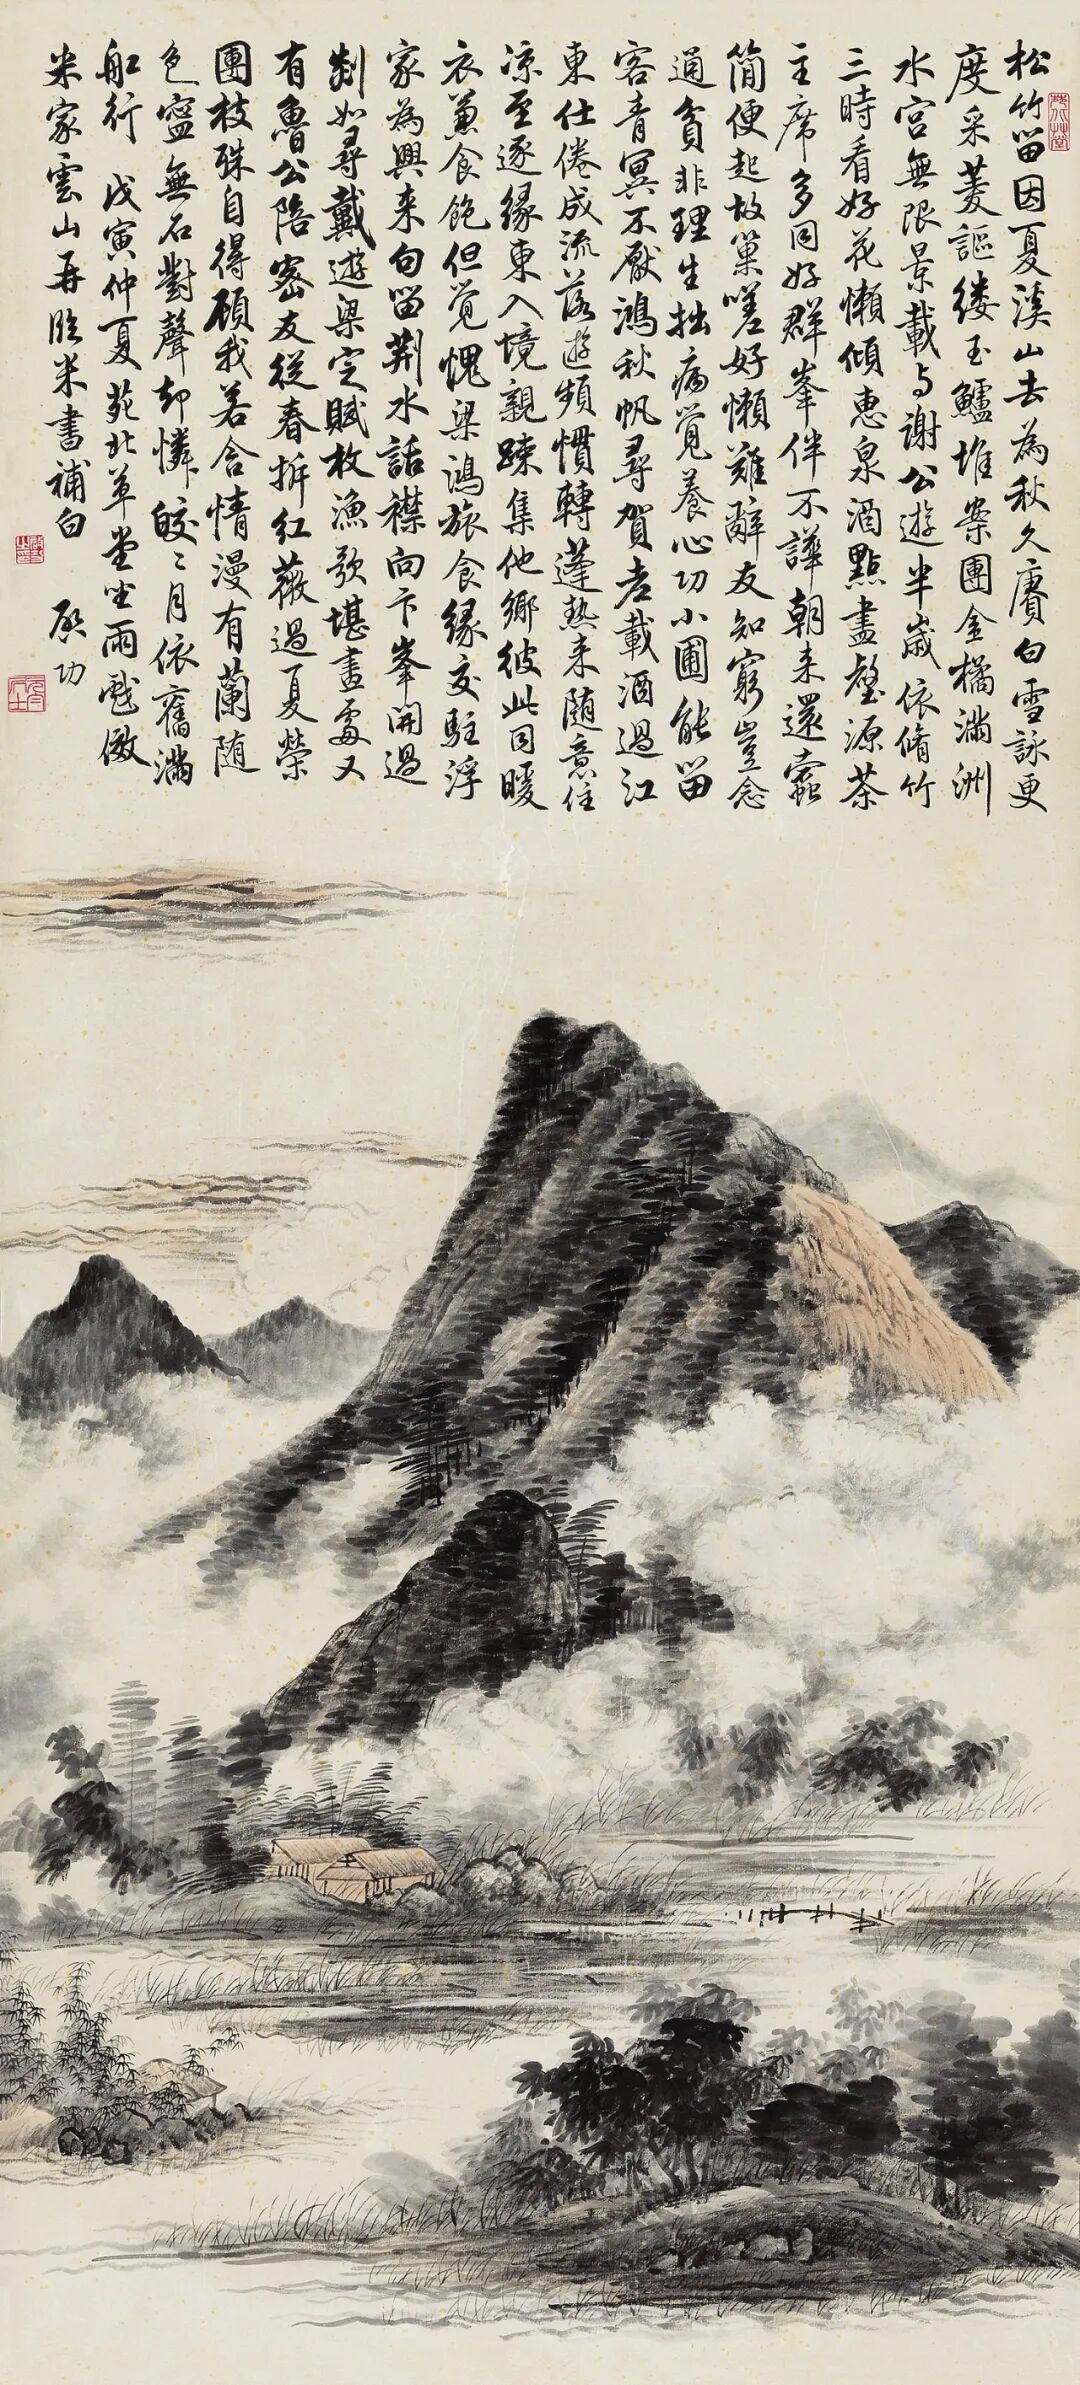 松竹留因夏溪山去為秋久賡白雪詠更
度采菱謳縷玉鱸堆案團金橘滿洲
水宮無限景載与謝公遊半歲依脩竹
三時看好花懶傾惠泉酒點盡壑源茶
主席多同好群峯伴不譁朝来還蠹
簡便起故巢嗟好懶難辭友知窮豈念
通貧非理生拙病覺養心功小圃能留
客青冥不厭鴻秋帆尋賀老載酒過江
東仕倦成流落遊頻慣轉蓬熱来随意住
凉至逐緣東入境親踈集他鄉彼此同暖
衣兼食飽但覺愧梁鴻旅食緣交駐浮
家為興来句留荆水話襟向卞峯開過
剡如尋戴遊梁定賦枚漁歌堪畫處又
有魯公陪密友從春拆紅薇過夏榮
團枝殊自得顧我若含情漫有蘭随
色寧無石對聲却憐皎〻月依舊滿
舡行 戊寅仲夏苑北草堂坐雨戲倣
米家雲山并臨米書補白 啟功